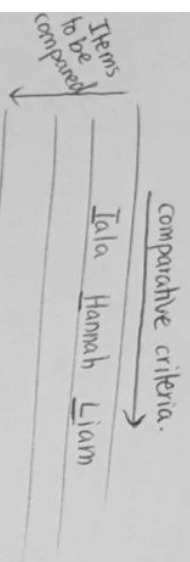 comparative criteria.
Items
to be
compared
Iala Hannah Liam